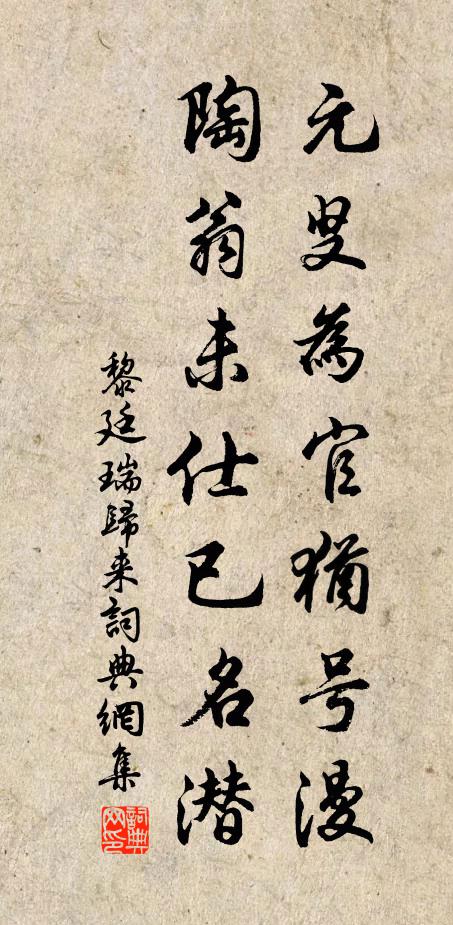 元叟為官猶号漫
陶翁未仕已名潜
黎廷瑞歸来詞典網集
詞典網印